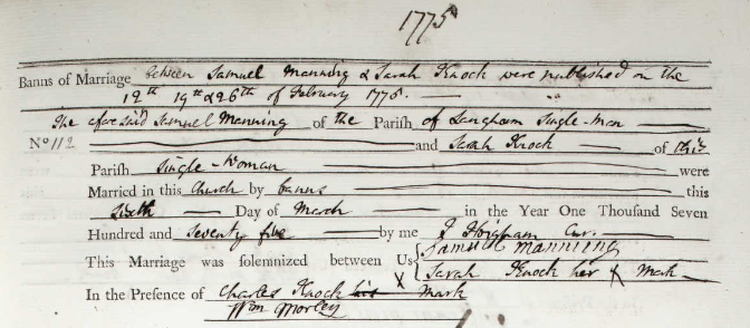 1775
Banns of Marriage between Samuel Manning & Sarah Knock were published on the
12th 19th & 26th of February 1775.
The aforesaid Samuel Manning of the Parish of Langham Single-Man
No 112 and Sarah Knock of this
Parish Single-Woman were
Married in this Church by banns this
Sixth Day of March in the Year One Thousand Seven
Hundred and Seventy five by me J Cur.
This Marriage was solemnized between Us Samuel Manning
Sarah Knock her X Mark
In the Presence of Charles Knock his X Mark
Wm Morley